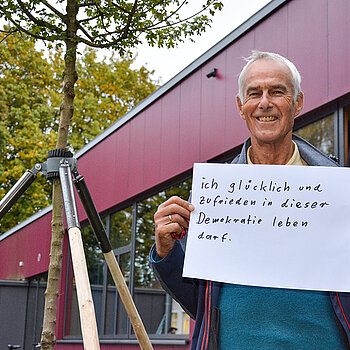 ich glücklich und
zufrieden in dieser
Demokratie leben
darf.